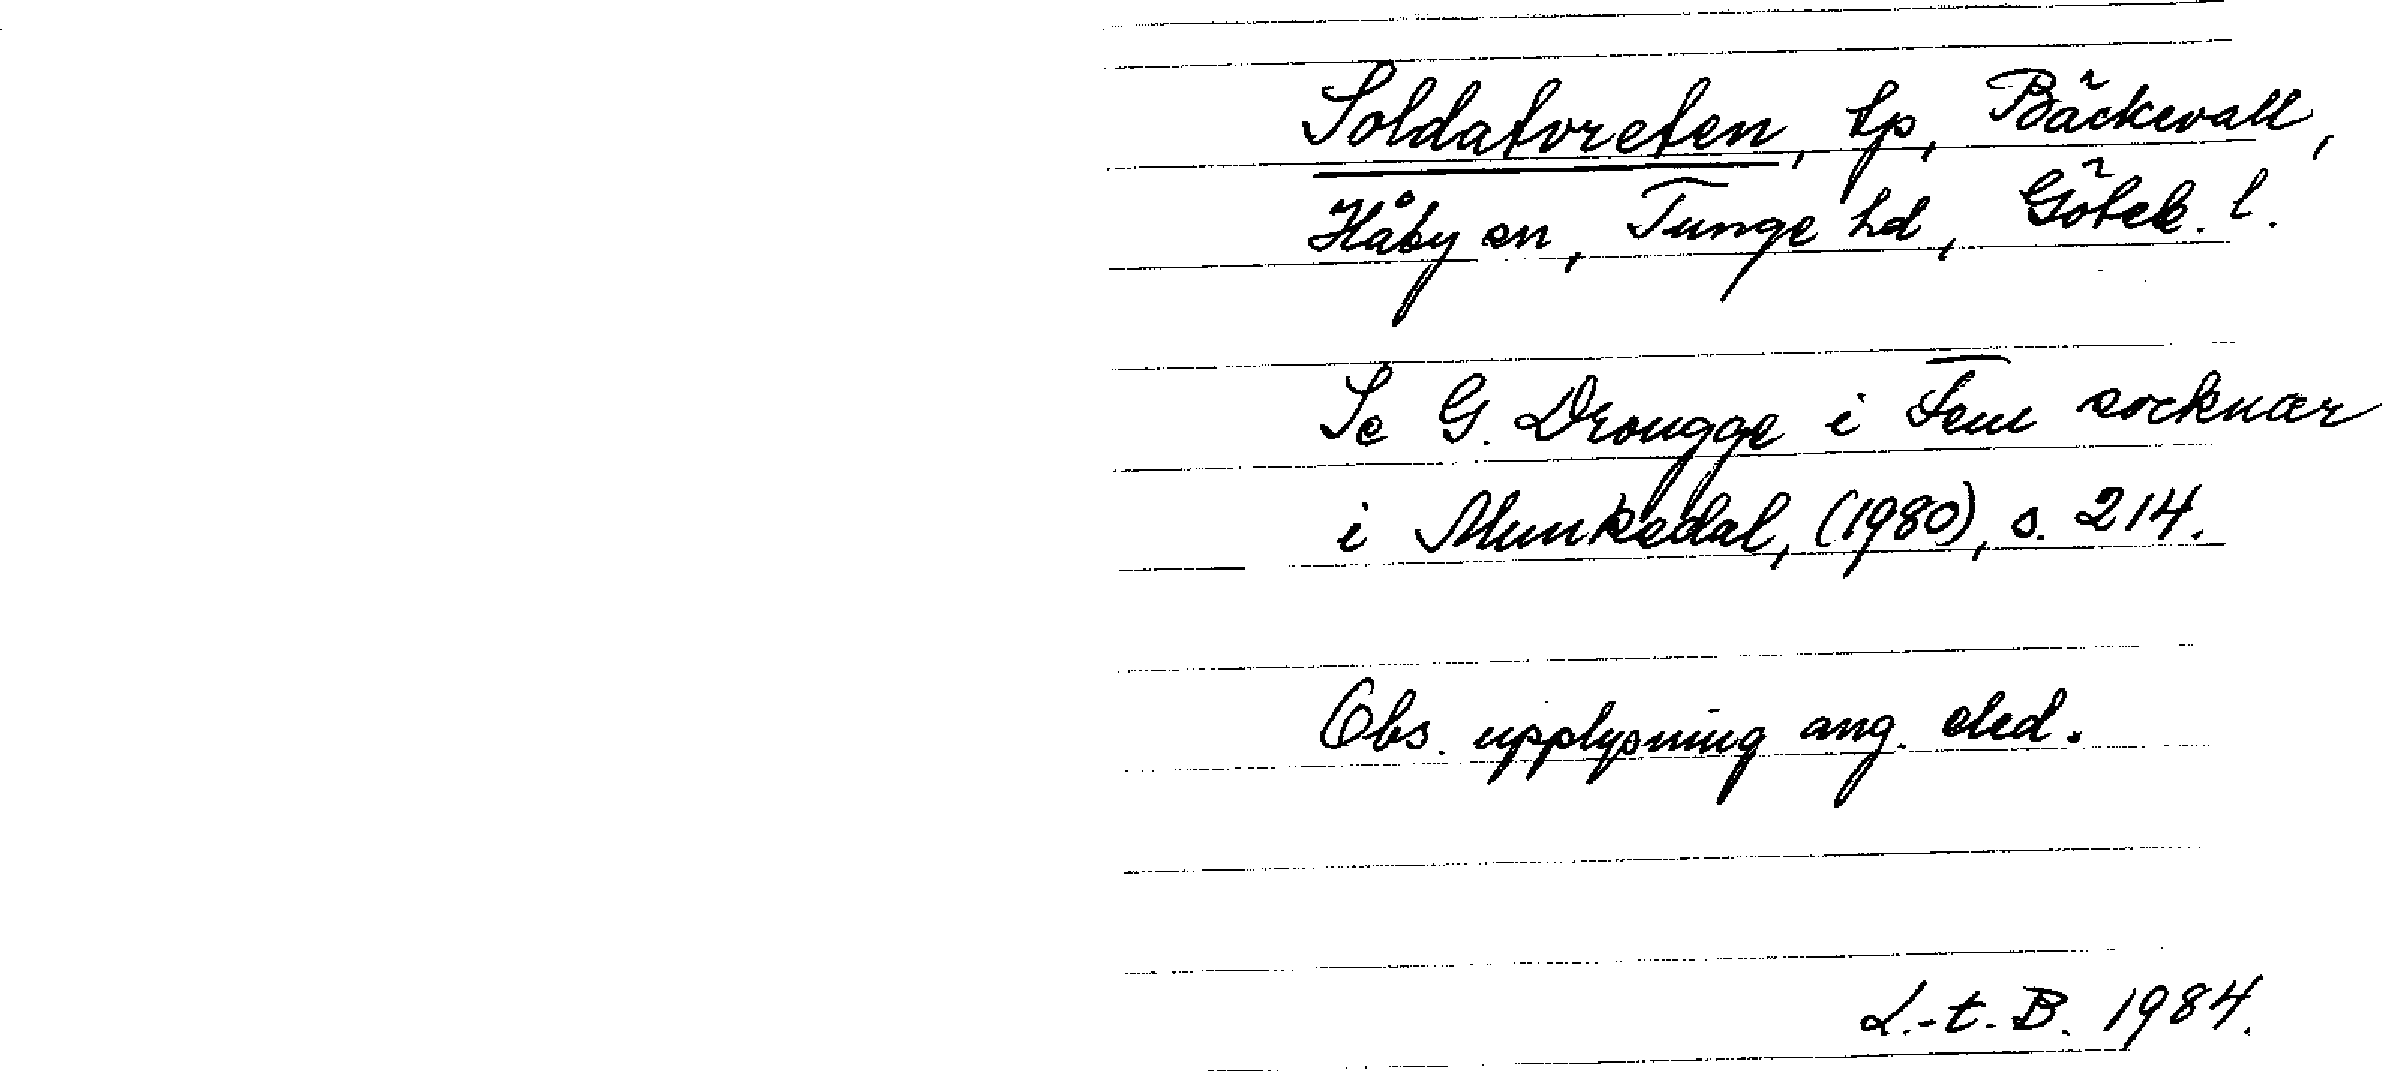 Soldatvreten, tp, Bäckevall,
Håby sn, Tunge hd, Göteb. l.
Se G. Drougge i Fem socknar
i Munkedal, (1980), s. 214.
Obs. upplysning ang. eled.
L.-t. B. 1984.